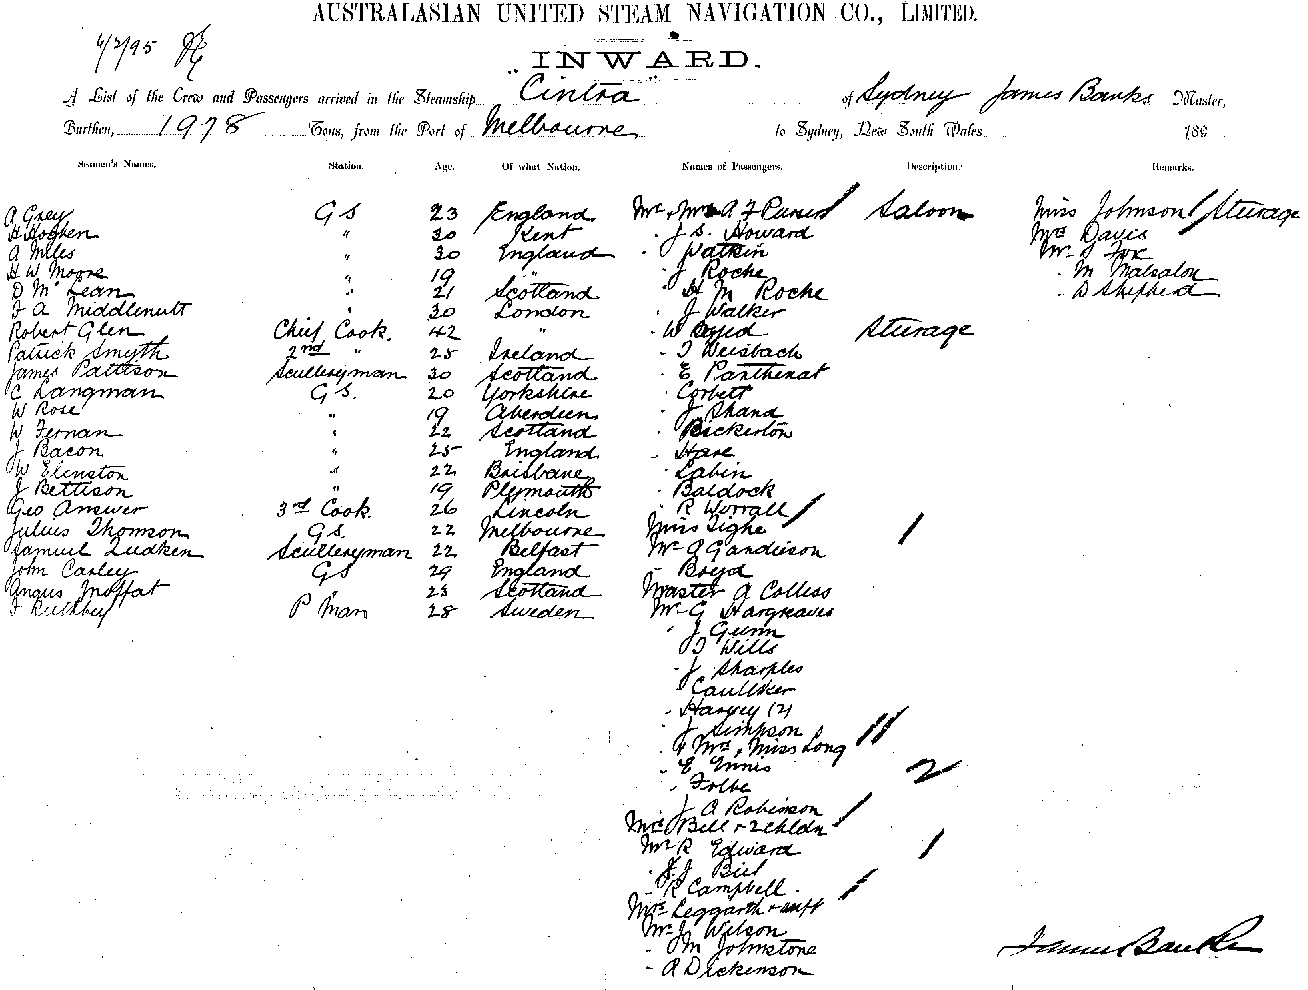 AUSTRALASIAN UNITED STEAM NAVIGATION CO., LIMITED.
6/2/95
INWARD.
A List of the Crew and Passengers arrived in the Steamship Cintra of Sydney James Banks Master,
Burthen, 1978 Tons, from the Port of Melbourne to Sydney, New South Wales 189
Seamen's Names. Station. Age. Of what Nation. Names of Passengers. Description. Remarks.
A Grey G S 23 England Mr & Mrs A F Saloon Miss Johnson Sturage
H Hogben " 30 Kent " J S. Howard Mrs Davis
A Miles " 30 England " Watkin Mr J Fox
H W Moore " 19 " " J Roche " M Malsalon
D Mc Lean " 21 Scotland " H M Roche " D Shepherd
J A Middlenutt " 30 London " J Walker
Robert Glen Chief Cook. 42 " " W Sturage
Patrick Smyth 2nd " 25 Ireland " T Weisbach
James Pattison Sculleryman 30 Scotland " E Panthenat
C Langman G S. 20 Yorkshire " Corbett
W Rose " 19 Aberdeen " J Shand
W Fernan " 22 Scotland " Bickerton
J Bacon " 25 England " Hare
W Elenston " 22 Brisbane " Labin
J Bettison " 19 Plymouth " Baldock
Geo Answer 3rd Cook. 26 Lincoln " R Worrall
Julius Thomson G S. 22 Melbourne Miss Tighe 1
Samuel Ludken Sculleryman 22 Belfast Mr A Gandieson
John Carley G S 29 England " Boyd
Angus Moffat " 23 Scotland Master A Colless
P Man 28 Sweden Mr G Hargreaves
" J Gunn
" T Wills
" J Sharples
" Caulker
" Harvey (2)
" J Simpson
" & Mrs & Miss Long 11
" E Ennis 2
" Folbe
" J A Robinson
Mrs Bell & 2 chldn
Mr R Edward 1
" J J
" R Campbell
Mrs Leggarth & inft
Mr J Wilson
" M Johnstone
" A Dickenson
James Banks